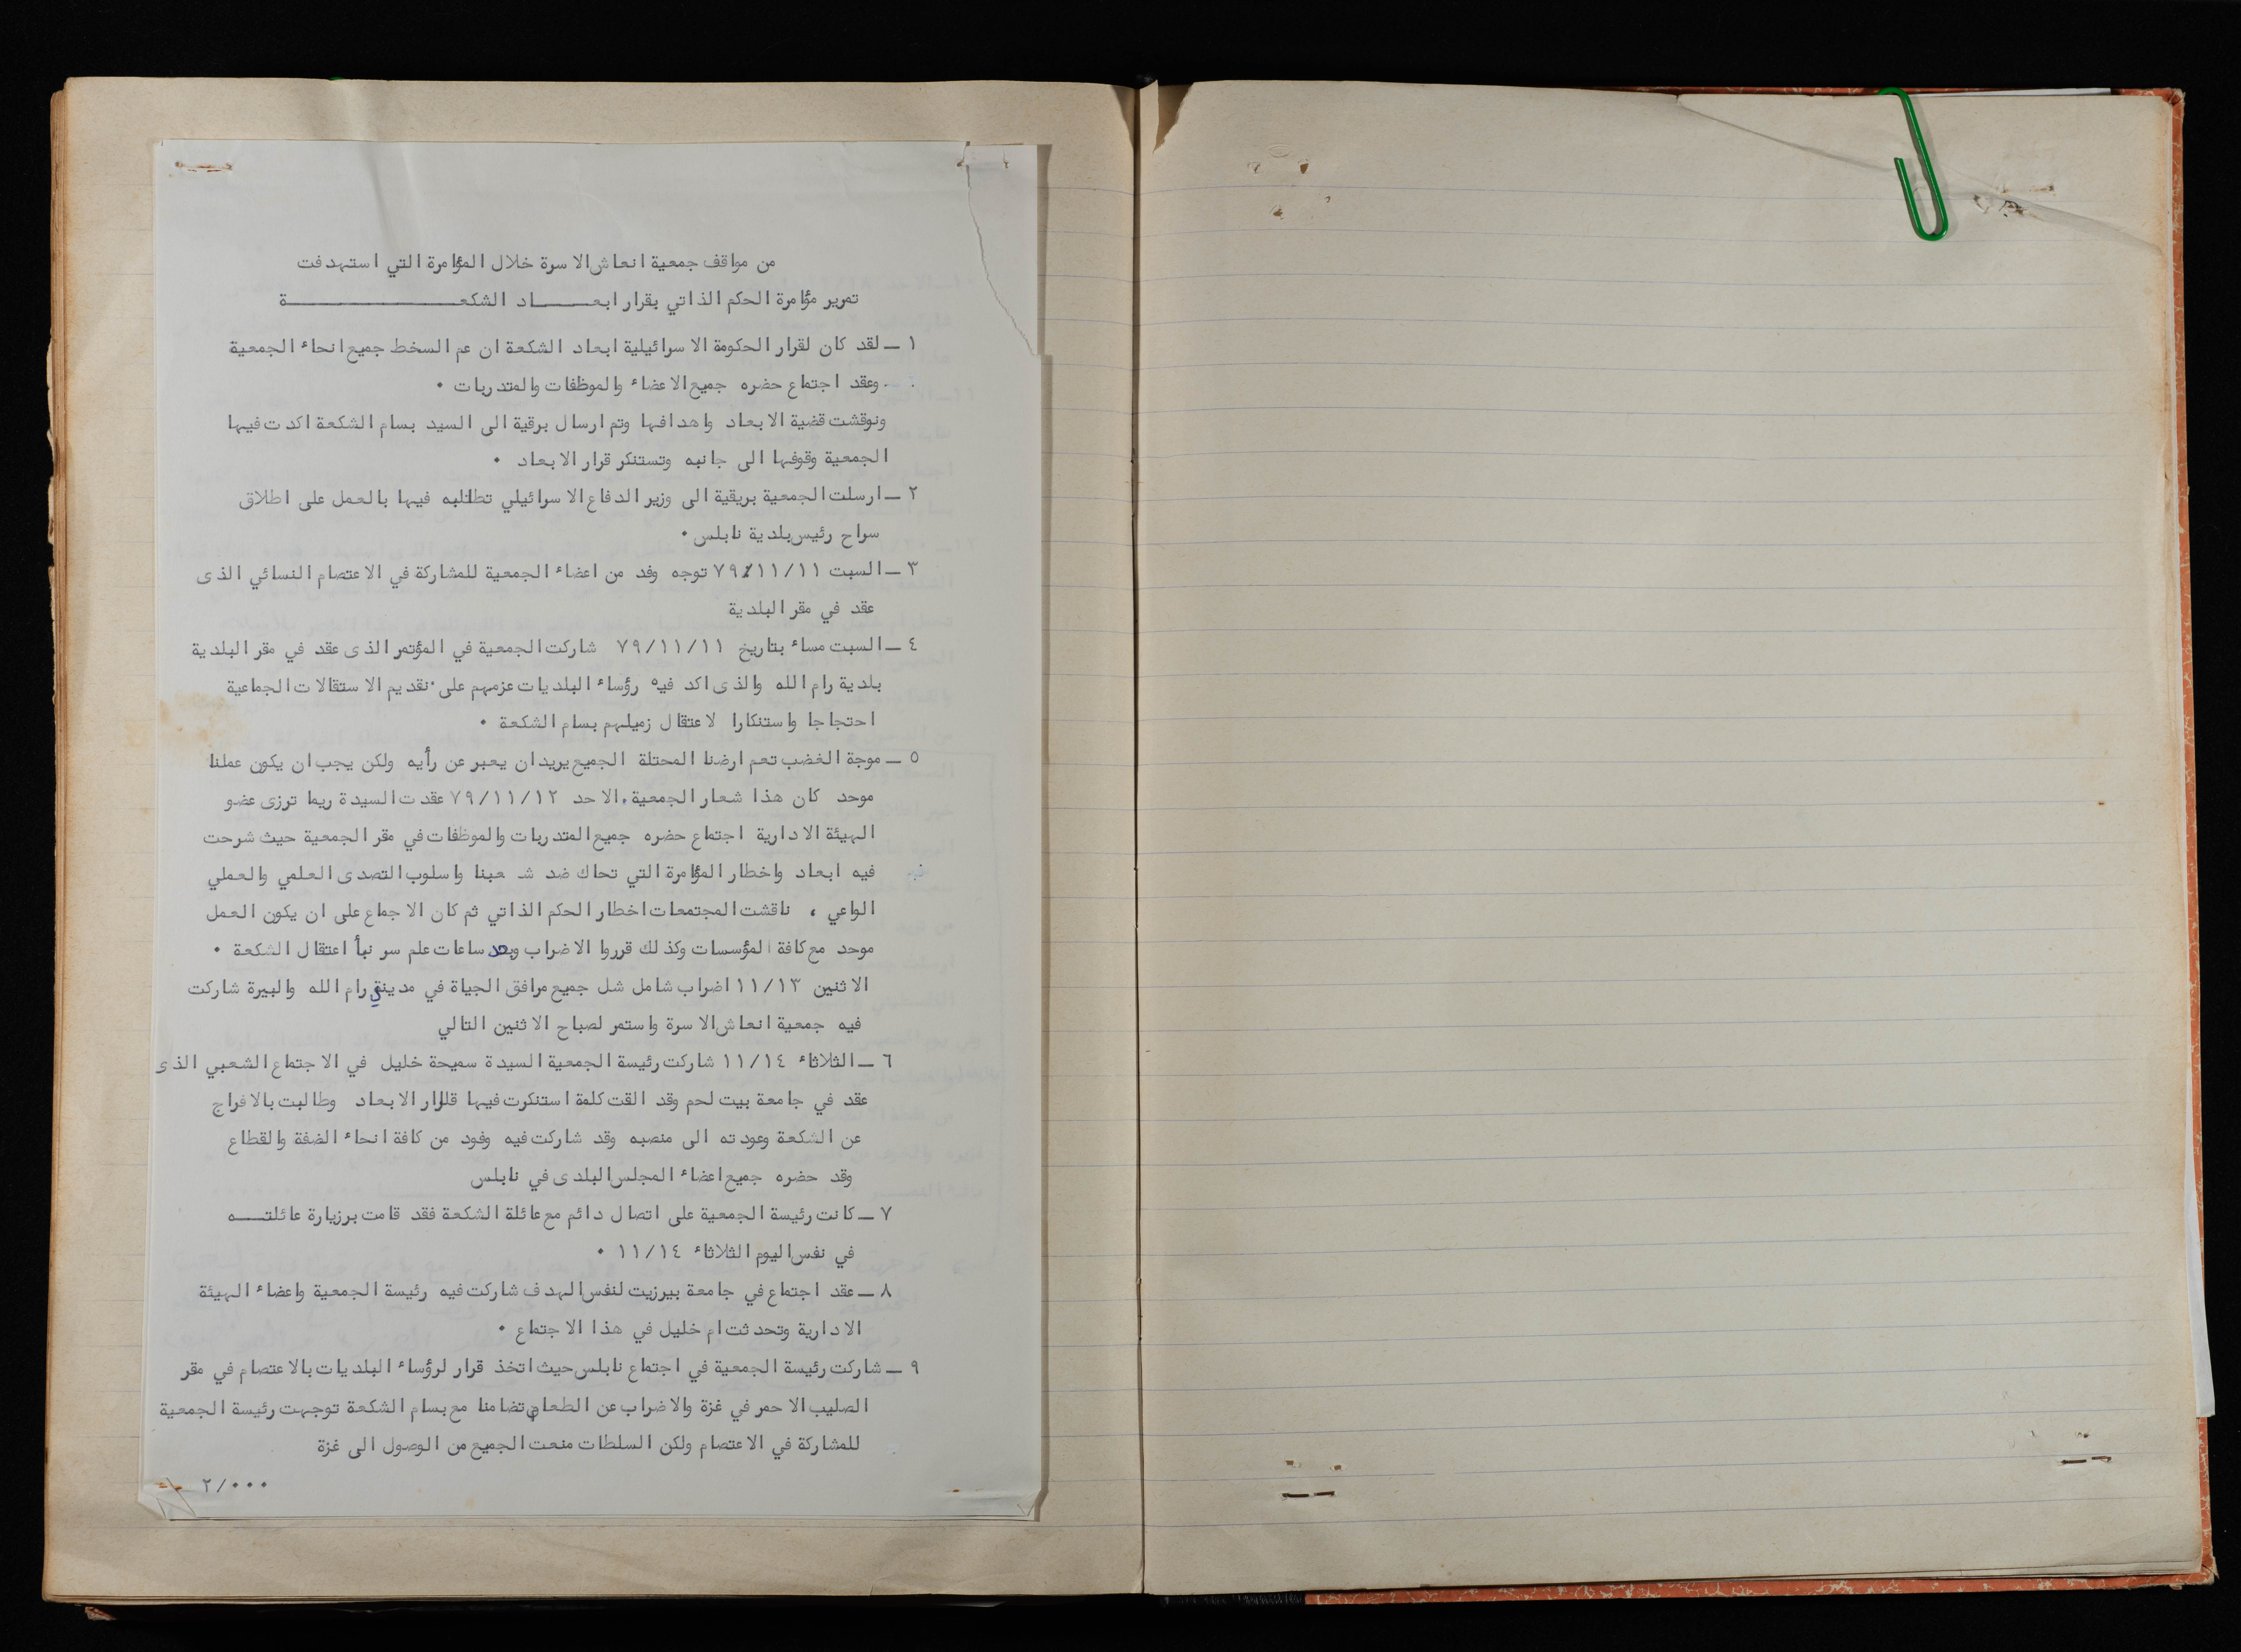 من مواقف جمعية انعاش الاسرة خلال المؤامرة التي استهدفت
تمرير مؤامرة الحكم الذاتي بقرار ابعـــــاد الشكعـــــــــــــــــة
١ ــ لقد كان لقرار الحكومة الاسرائيلية ابعاد الشكعة ان عم السخط جميع انحاء الجمعية
وعقد اجتماع حضره جميع الاعضاء والموظفات والمتدربات ٠
ونوقشت قضية الابعاد واهدافها وتم ارسال برقية الى السيد بسام الشكعة اكدت فيها
الجمعية وقوفها الى جانبه وتستنكر قرار الابعاد ٠
٢ ــ ارسلت الجمعية بريقية الى وزير الدفاع الاسرائيلي تطالبه فيها بالعمل على اطلاق
سواح رئيس بلدية نابلس ٠
٣ ــ السبت ٧٩/١١/١١ توجه وفد من اعضاء الجمعية للمشاركة في الاعتصام النسائي الذى
عقد في مقر البلدية
٤ ــ السبت مساء بتاريخ ٧٩/١١/١١ شاركت الجمعية في المؤتمر الذى عقد في مقر البلدية
بلدية رام الله والذى اكد فيه رؤساء البلديات عزمهم على تقديم الاستقالات الجماعية
احتجاجا واستنكارا لاعتقال زميلهم بسام الشكعة ٠
٥ ــ موجة الغضب تعم ارضنا المحتلة الجميع يريد ان يعبر عن رأيه ولكن يجب ان يكون عملنا
موحد كان هذا شعار الجمعية، الاحد ٧٩/١١/١٢ عقدت السيدة ريما ترزى عضو
الهيئة الادارية اجتماع حضره جميع المتدربات والموظفات في مقر الجمعية حيث شرحت
فيه ابعاد واخطار المؤامرة التي تحاك ضد شعبنا واسلوب التصدى العلمي والعملي
الواعي ، ناقشت المجتمعات اخطار الحكم الذاتي ثم كان الاجماع على ان يكون العمل
موحد مع كافة المؤسسات وكذلك قرروا الاضراب وبعد ساعات علم سر نبأ اعتقال الشكعة ٠
الاثنين ١١/١٣ اضراب شامل شل جميع مرافق الحياة في مدينتي رام الله والبيرة شاركت
فيه جمعية انعاش الاسرة واستمر لصباح الاثنين التالي
٦ ــ الثلاثاء ١١/١٤ شاركت رئيسة الجمعية السيدة سميحة خليل في الاجتماع الشعبي الذى
عقد في جامعة بيت لحم وقد القت كلمة استنكرت فيها قرار الابعاد وطالبت بالافراج
عن الشكعة وعودته الى منصبه وقد شاركت فيه وفود من كافة انحاء الضفة والقطاع
وقد حضره جميع اعضاء المجلس البلدى في نابلس
٧ ــ كانت رئيسة الجمعية على اتصال دائم مع عائلة الشكعة فقد قامت برزيارة عائلتـــه
في نفس اليوم الثلاثاء ١١/١٤ ٠
٨ ــ عقد اجتماع في جامعة بيرزيت لنفس الهدف شاركت فيه رئيسة الجمعية واعضاء الهيئة
الادارية وتحدثت ام خليل في هذا الاجتماع ٠
٩ ــ شاركت رئيسة الجمعية في اجتماع نابلس حيث اتخذ قرار لرؤساء البلديات بالاعتصام في مقر
الصليب الاحمر في غزة والاضراب عن الطعام تضامنا مع بسام الشكعة توجهت رئيسة الجمعية
للمشاركة في الاعتصام ولكن السلطات منعت الجميع من الوصول الى غزة
٢/٠٠٠